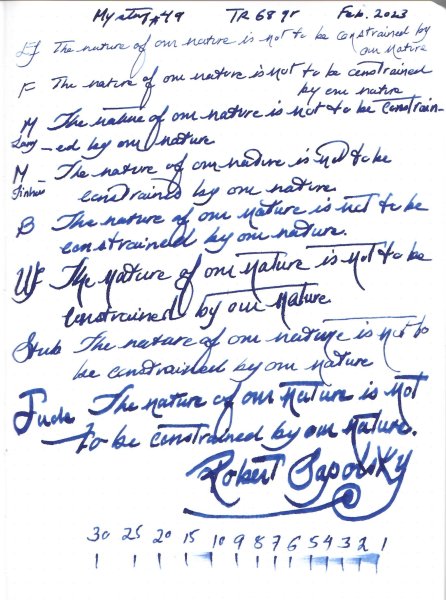 Mystery #49 TR 68 gr Feb. 2023
EF The nature of our nature is not to be constrained by
our nature
F The nature of our nature is not to be constrained
by our nature
M The nature of our nature is not to be constrain-
Lamy -ed by our nature
M - The nature of our nature is not to be
Jinhao constrained by our nature.
B The nature of our nature is not to be
constrained by our nature.
The nature of our nature is not to be
constrained by our nature.
Stub The nature of our nature is not to
be constrained by our nature
Fude The nature of our nature is not
to be constrained by our nature.
Robert Sapolsky
30 25 20 15 10 9 8 7 6 5 4 3 2 1